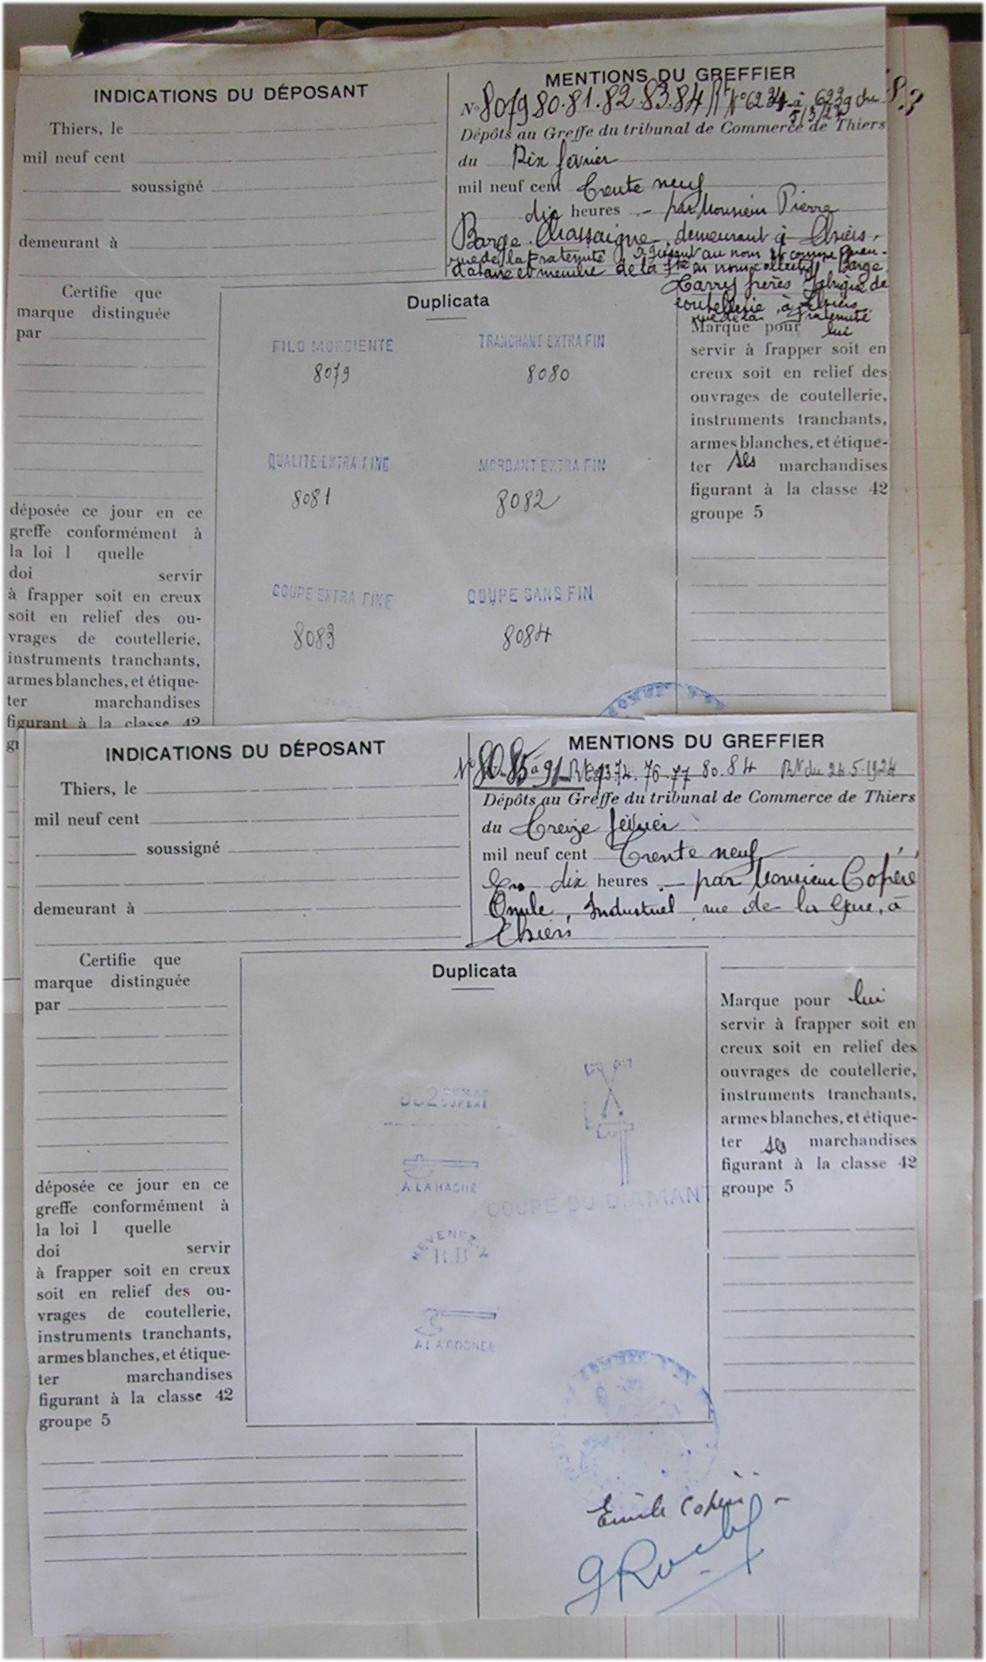 INDICATIONS DU DÉPOSANT
Thiers, le
mil neuf cent
soussigné
demeurant à
Certifie que
marque distinguée
par
déposée ce jour en ce
greffe conformément à
la loi l quelle
doi servir
à frapper soit en creux
soit en relief des ou-
vrages de coutellerie,
instruments tranchants,
armes blanches, et étique-
ter marchandises
figurant à la classe 42
MENTIONS DU GREFFIER
N° 8079 80.81.82.83.84 Rt N° 6234 à 6239 du
Dépôts au Greffe du tribunal de Commerce de Thiers
du Dix février
mil neuf cent trente neuf
dix heures par Monsieur Pierre
Barge Chassaigne, demeurant à Thiers,
rue de la fraternité
Barge
frères fabrique de
coutellerie, à Thiers
rue de la fraternité
Duplicata
FILO MORDIENTE
8079
TRANCHANT EXTRA FIN
8080
QUALITE EXTRA FINE
8081
MORDANT EXTRA FIN
8082
COUPE EXTRA FINE
8083
COUPE SANS FIN
8084
Marque pour lui
servir à frapper soit en
creux soit en relief des
ouvrages de coutellerie,
instruments tranchants,
armes blanches, et étique-
ter ses marchandises
figurant à la classe 42
groupe 5
INDICATIONS DU DÉPOSANT
Thiers, le
mil neuf cent
soussigné
demeurant à
Certifie que
marque distinguée
par
déposée ce jour en ce
greffe conformément à
la loi l quelle
doi servir
à frapper soit en creux
soit en relief des ou-
vrages de coutellerie,
instruments tranchants,
armes blanches, et étique-
ter marchandises
figurant à la classe 42
groupe 5
MENTIONS DU GREFFIER
N° 8085 à 91 76.77 80.84 RN du 24.5.1924
Dépôts au Greffe du tribunal de Commerce de Thiers
du Treize février
mil neuf cent Trente neuf
dix heures par Monsieur Copéré
Emile, Industriel rue de la Gare, à
Thiers
Duplicata
A LA HACHE
COUPE DU DIAMANT
REVENEZ-Y
BB
A LA COGNEE
Marque pour lui
servir à frapper soit en
creux soit en relief des
ouvrages de coutellerie,
instruments tranchants,
armes blanches, et étique-
ter ses marchandises
figurant à la classe 42
groupe 5
Emile Copéré